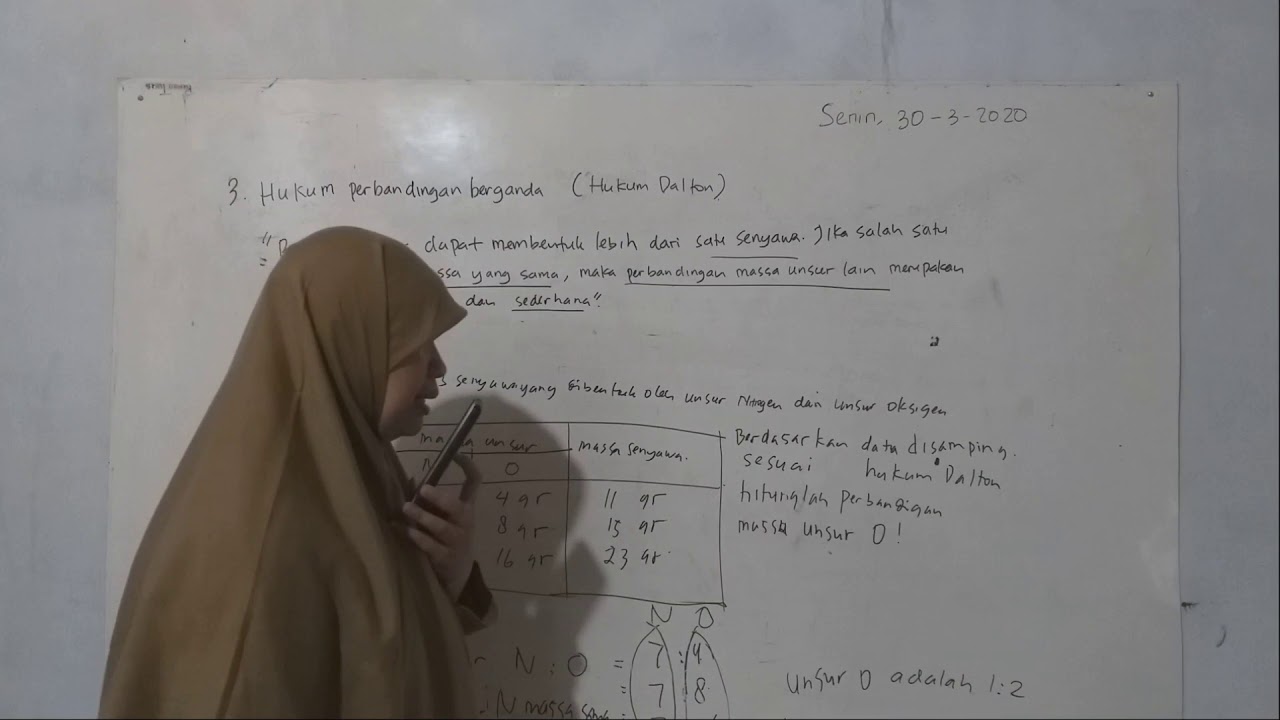 Senin, 30-3-2020
3. Hukum perbandingan berganda (Hukum Dalton)
dapat membentuk lebih dari satu senyawa. Jika salah satu
yang sama, maka perbandingan massa unsur lain merupakan
dan sederhana"
senyawa yang dibentuk oleh unsur Nitrogen dan unsur oksigen
massa unsur massa senyawa.
O
4 gr 11 gr
8 gr 15 gr
16 gr 23 gr
Berdasarkan data disamping.
sesuai hukum Dalton
hitunglah perbandigan
massa unsur O!
N O
N : O = 7 : 4
= 7 8
N massa sama
unsur O adalah 1:2